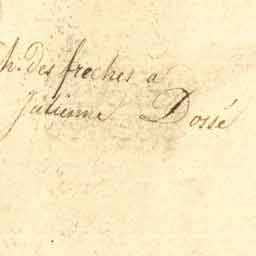 h. des freches a
Julienne Dossé